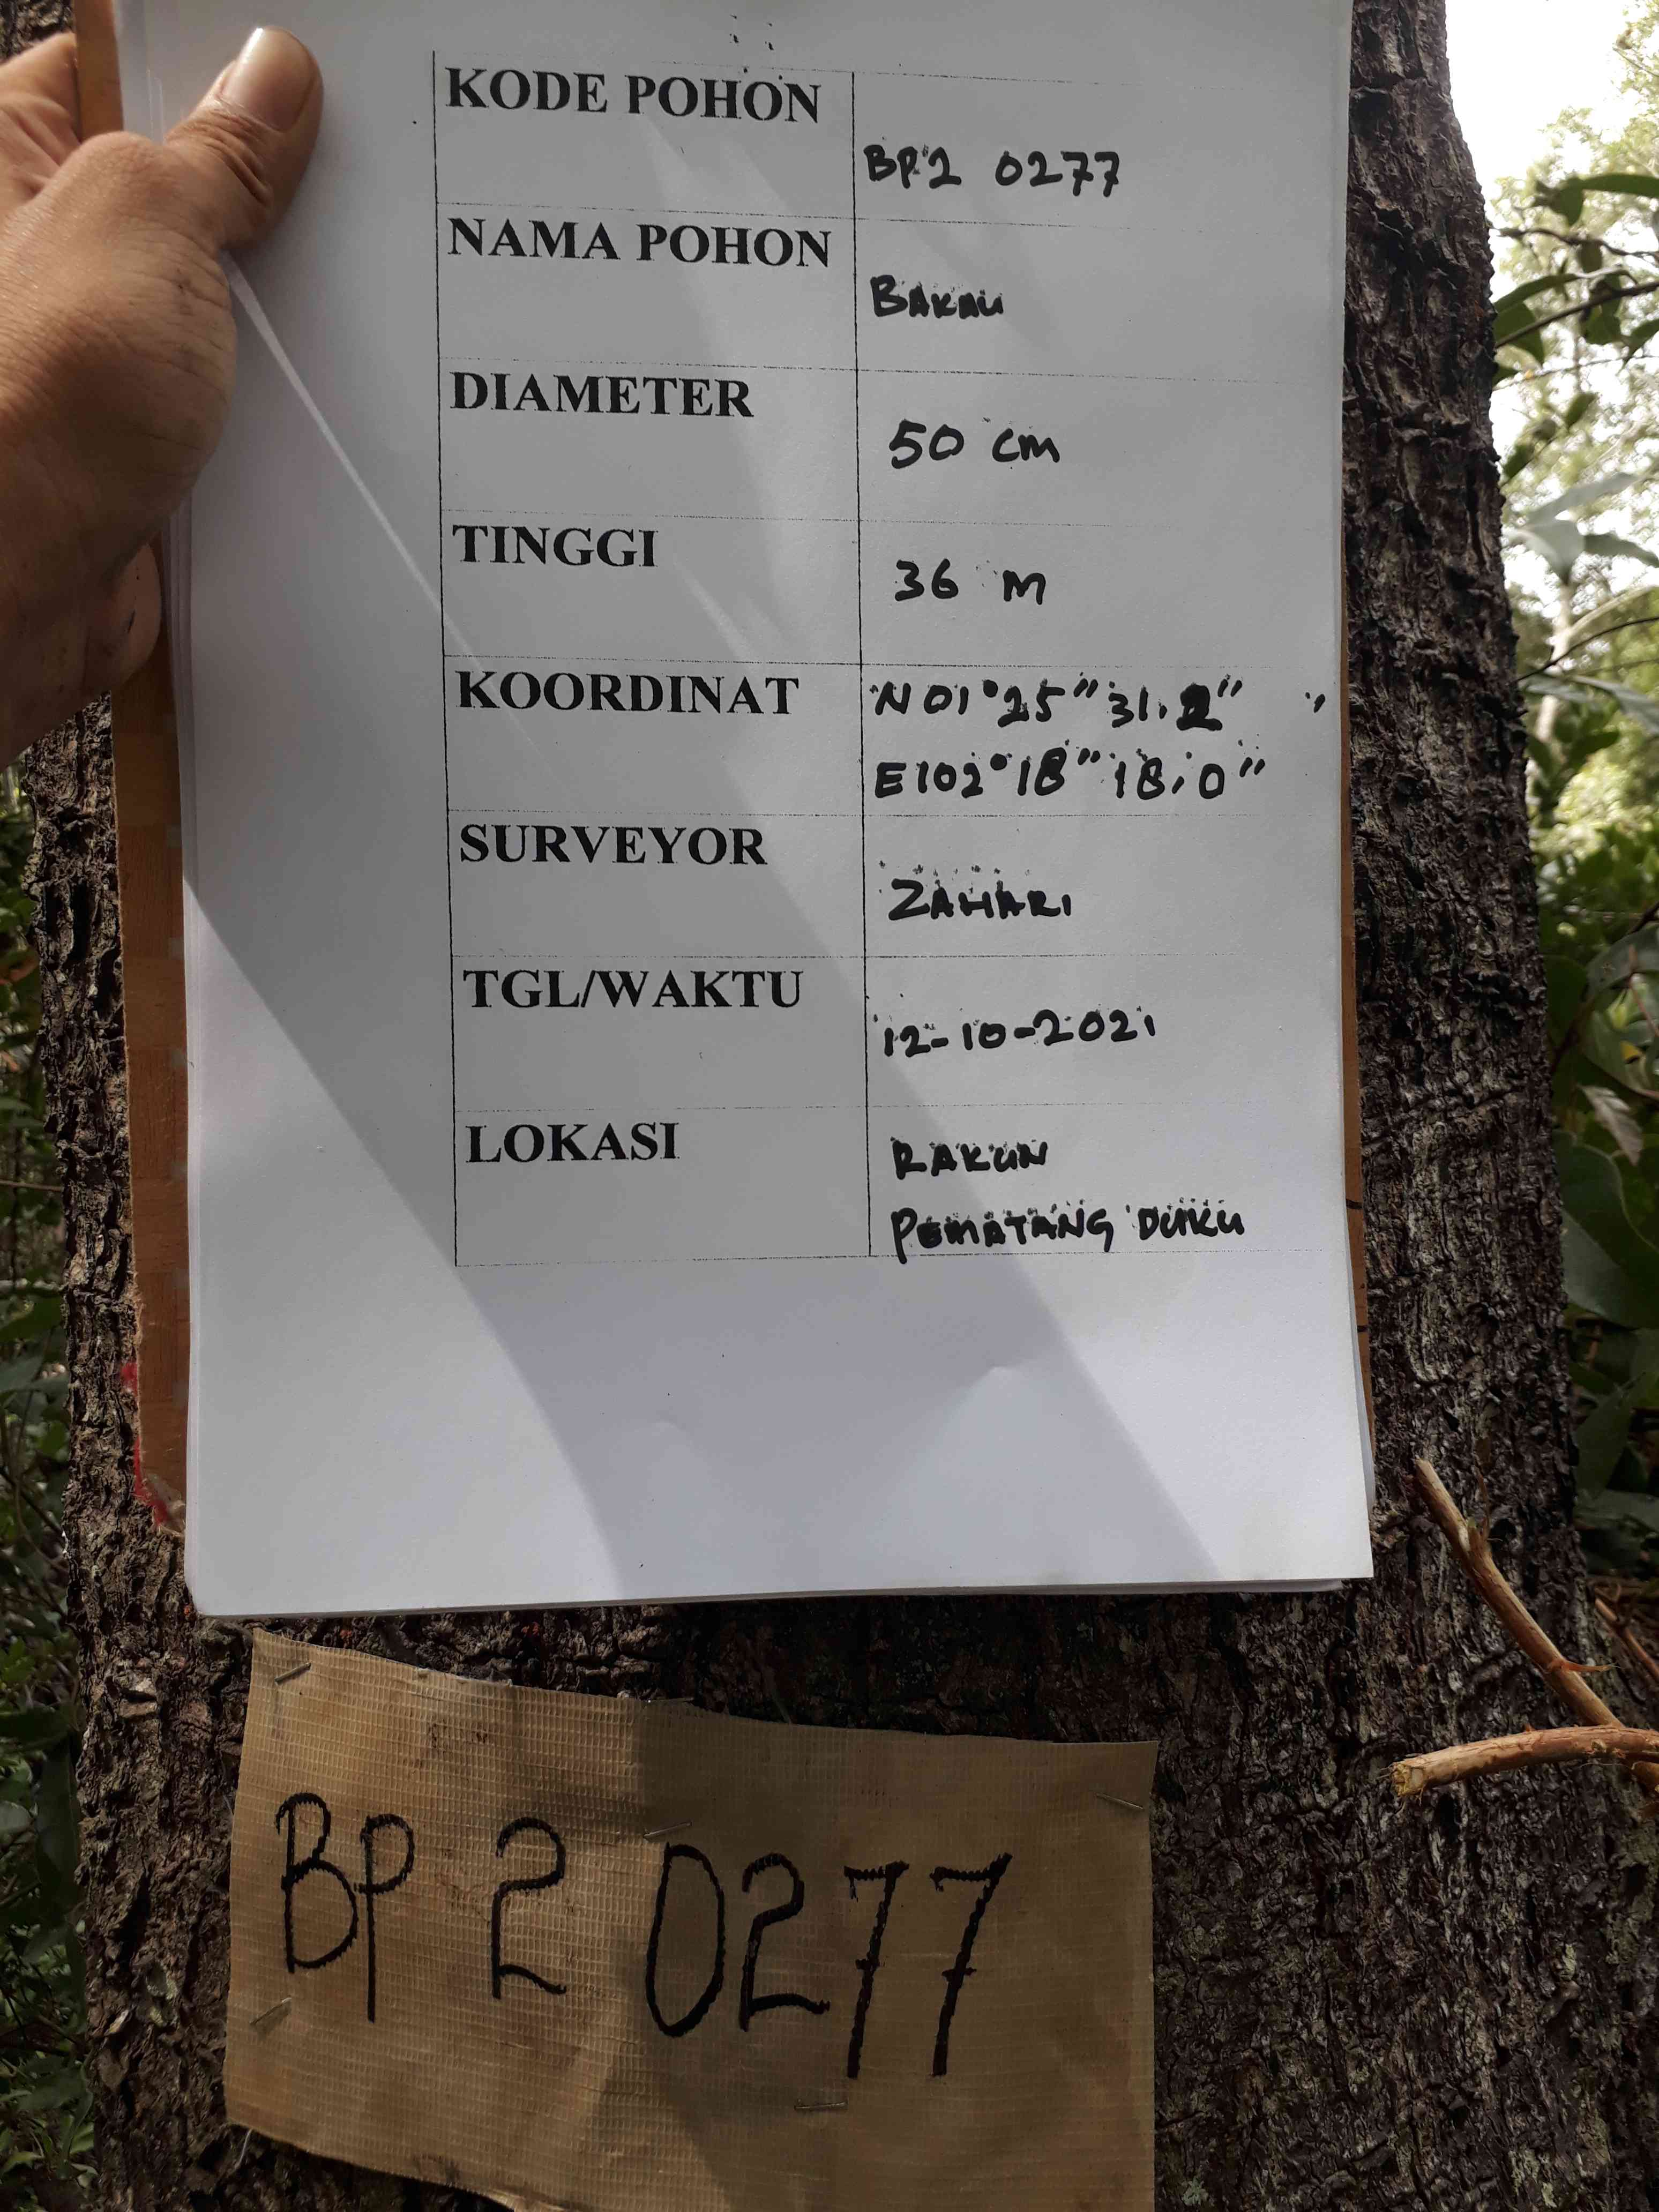 KODE POHON
BP2 0277
NAMA POHON
BAKAU
DIAMETER
50 cm
TINGGI
36 M
KOORDINAT
N 01°25"31.2"
E102°18"18.0"
SURVEYOR
ZAHARI
TGL/WAKTU
12-10-2021
LOKASI
RAKUN
PEMATANG DUKU
BP 2 0277